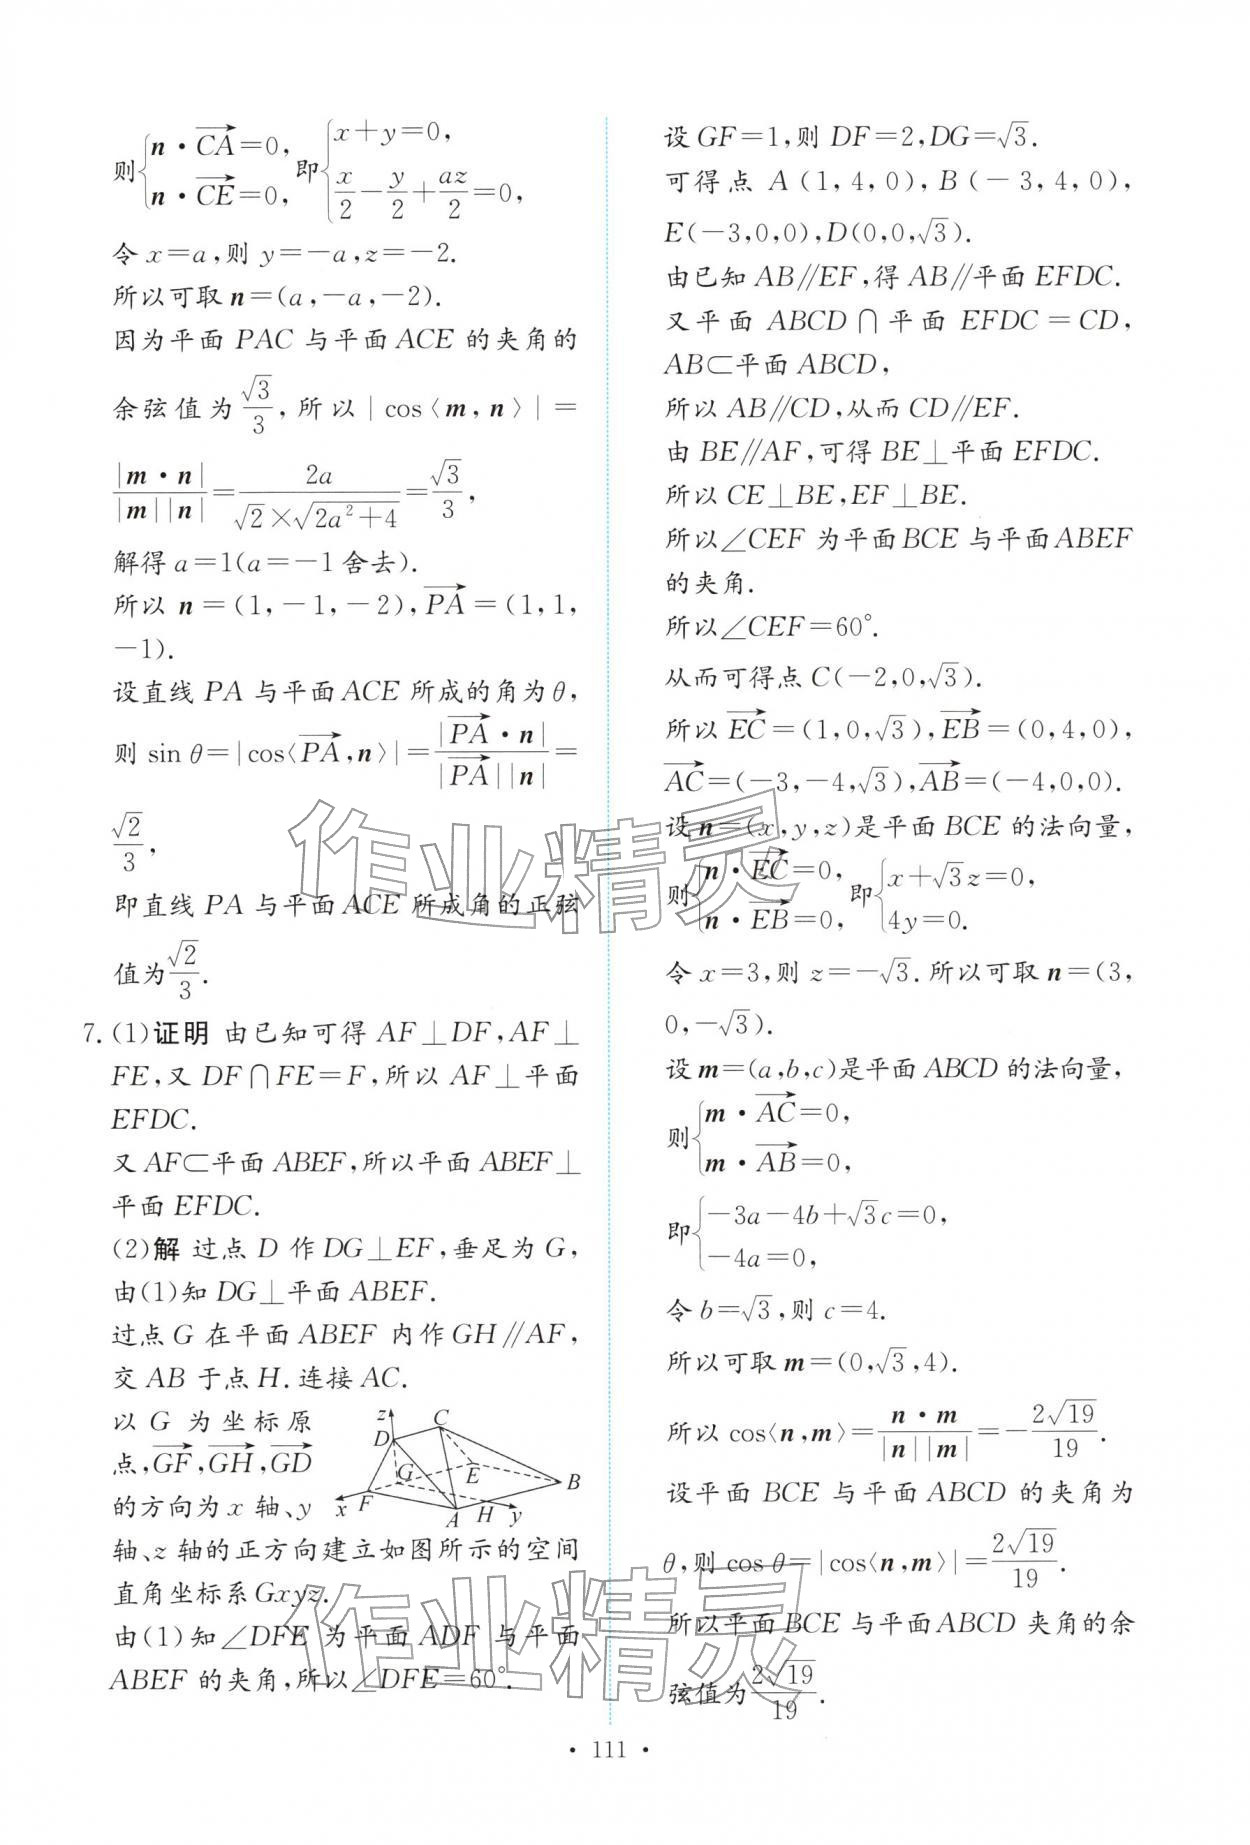 则{n·CA→=0, n·CE→=0, 即{x+y=0, x/2-y/2+az/2=0,
令x=a,则y=-a,z=-2.
所以可取n=(a,-a,-2).
因为平面PAC与平面ACE的夹角的
余弦值为√3/3,所以|cos⟨m,n⟩|=
|m·n|/|m||n|=2a/(√2×√(2a²+4))=√3/3,
解得a=1(a=-1舍去).
所以n=(1,-1,-2),PA→=(1,1,
-1).
设直线PA与平面ACE所成的角为θ,
则sin θ=|cos⟨PA→,n⟩|=|PA→·n|/|PA→||n|=
√2/3,
即直线PA与平面ACE所成角的正弦
值为√2/3.
7.(1)证明 由已知可得AF⊥DF,AF⊥
FE,又DF∩FE=F,所以AF⊥平面
EFDC.
又AF⊂平面ABEF,所以平面ABEF⊥
平面EFDC.
(2)解 过点D作DG⊥EF,垂足为G,
由(1)知DG⊥平面ABEF.
过点G在平面ABEF内作GH∥AF,
交AB于点H.连接AC.
以G为坐标原
点,GF→,GH→,GD→
的方向为x轴、y
轴、z轴的正方向建立如图所示的空间
直角坐标系Gxyz.
z
C
D
G
E
B
x
F
A
H
y
由(1)知∠DFE为平面ADF与平面
ABEF的夹角,所以∠DFE=60°.
设GF=1,则DF=2,DG=√3.
可得点A(1,4,0),B(-3,4,0),
E(-3,0,0),D(0,0,√3).
由已知AB∥EF,得AB∥平面EFDC.
又平面ABCD∩平面EFDC=CD,
AB⊂平面ABCD,
所以AB∥CD,从而CD∥EF.
由BE∥AF,可得BE⊥平面EFDC.
所以CE⊥BE,EF⊥BE.
所以∠CEF为平面BCE与平面ABEF
的夹角.
所以∠CEF=60°.
从而可得点C(-2,0,√3).
所以EC→=(1,0,√3),EB→=(0,4,0),
AC→=(-3,-4,√3),AB→=(-4,0,0).
设n=(x,y,z)是平面BCE的法向量,
则{n·EC→=0, n·EB→=0, 即{x+√3z=0, 4y=0.
令x=3,则z=-√3.所以可取n=(3,
0,-√3).
设m=(a,b,c)是平面ABCD的法向量,
则{m·AC→=0, m·AB→=0,
即{-3a-4b+√3c=0, -4a=0,
令b=√3,则c=4.
所以可取m=(0,√3,4).
所以cos⟨n,m⟩=n·m/|n||m|=-2√19/19.
设平面BCE与平面ABCD的夹角为
θ,则cos θ=|cos⟨n,m⟩|=2√19/19.
所以平面BCE与平面ABCD夹角的余
弦值为2√19/19.
作业精灵
作业精灵
·111·